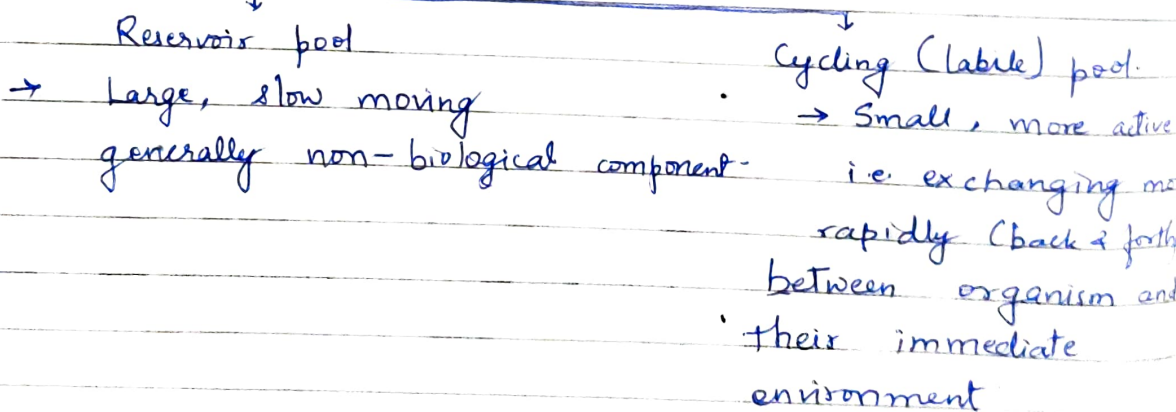 Reservoir pool
→ Large, slow moving
generally non-biological component-
Cycling (labile) pool.
→ Small, more active
i.e. exchanging
rapidly (back & forth
between organism and
their immediate
environment